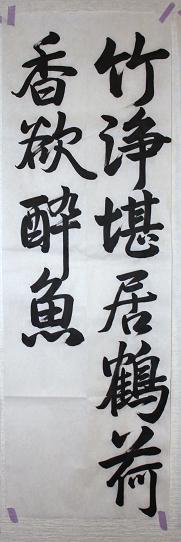 竹淨堪居鶴荷
香欲醉魚